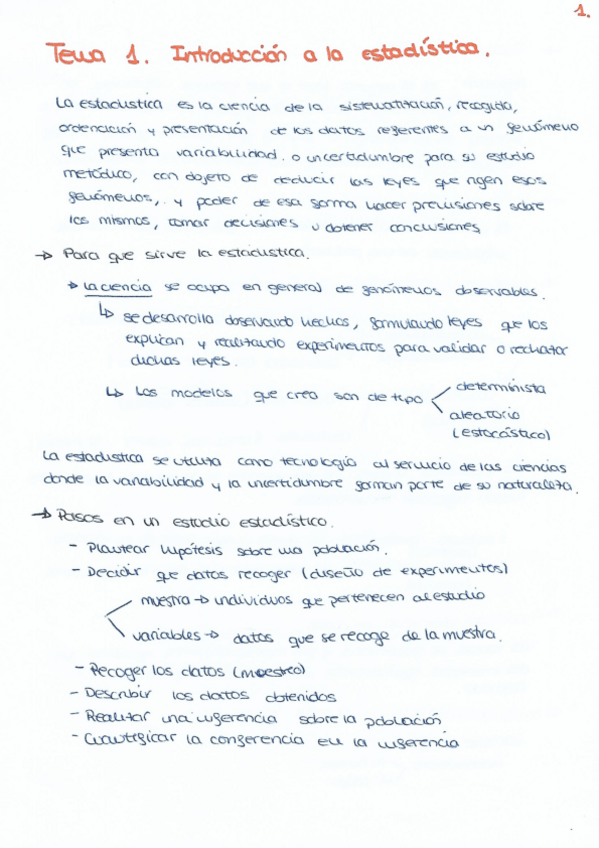 1.
Tema 1. Introducción a la estadística.
La estadística es la ciencia de la sistematización, recogida,
ordenación y presentación de los datos referentes a un fenómeno
que presenta variabilidad o incertidumbre para su estudio
metódico, con objeto de deducir las leyes que rigen esos
fenómenos, y poder de esa forma hacer previsiones sobre
los mismos, tomar decisiones u obtener conclusiones
→ Para que sirve la estadística.
La ciencia se ocupa en general de fenómenos observables.
↳ se desarrolla observando hechos, formulando leyes que los
explican y realizando experimentos para validar o rechazar
dichas leyes.
↳ Los modelos que crea son de tipo
determinista
aleatorio
(estocástico)
La estadística se utiliza como tecnología al servicio de las ciencias
donde la variabilidad y la incertidumbre forman parte de su naturaleza.
→ Pasos en un estudio estadístico.
- Plantear hipótesis sobre una población.
- Decidir que datos recoger (diseño de experimentos)
muestra → individuos que pertenecen al estudio
variables → datos que se recoge de la muestra.
- Recoger los datos (muestreo)
- Describir los datos obtenidos
- Realizar una inferencia sobre la población
- Cuantificar la conferencia en la inferencia